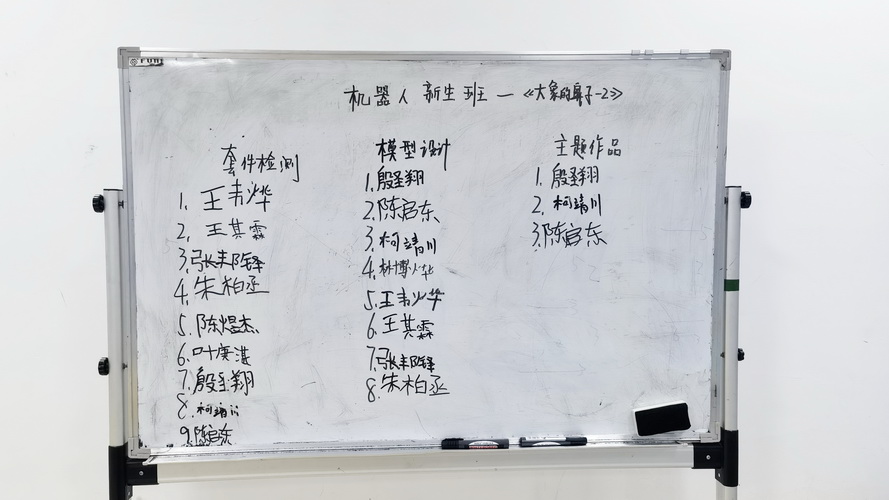 机器人新生班—《大象的鼻子-2》
套件检测
1. 王韦烨
2. 王其霖
3. 张丰铎
4. 朱柏丞
5. 陈焜杰
6. 叶庚湛
7. 殷圣翔
8. 柯靖川
9. 陈启东
模型设计
1. 殷圣翔
2. 陈启东
3. 柯靖川
4. 林博烨
5. 王韦烨
6. 王其霖
7. 张丰铎
8. 朱柏丞
主题作品
1. 殷圣翔
2. 柯靖川
3. 陈启东